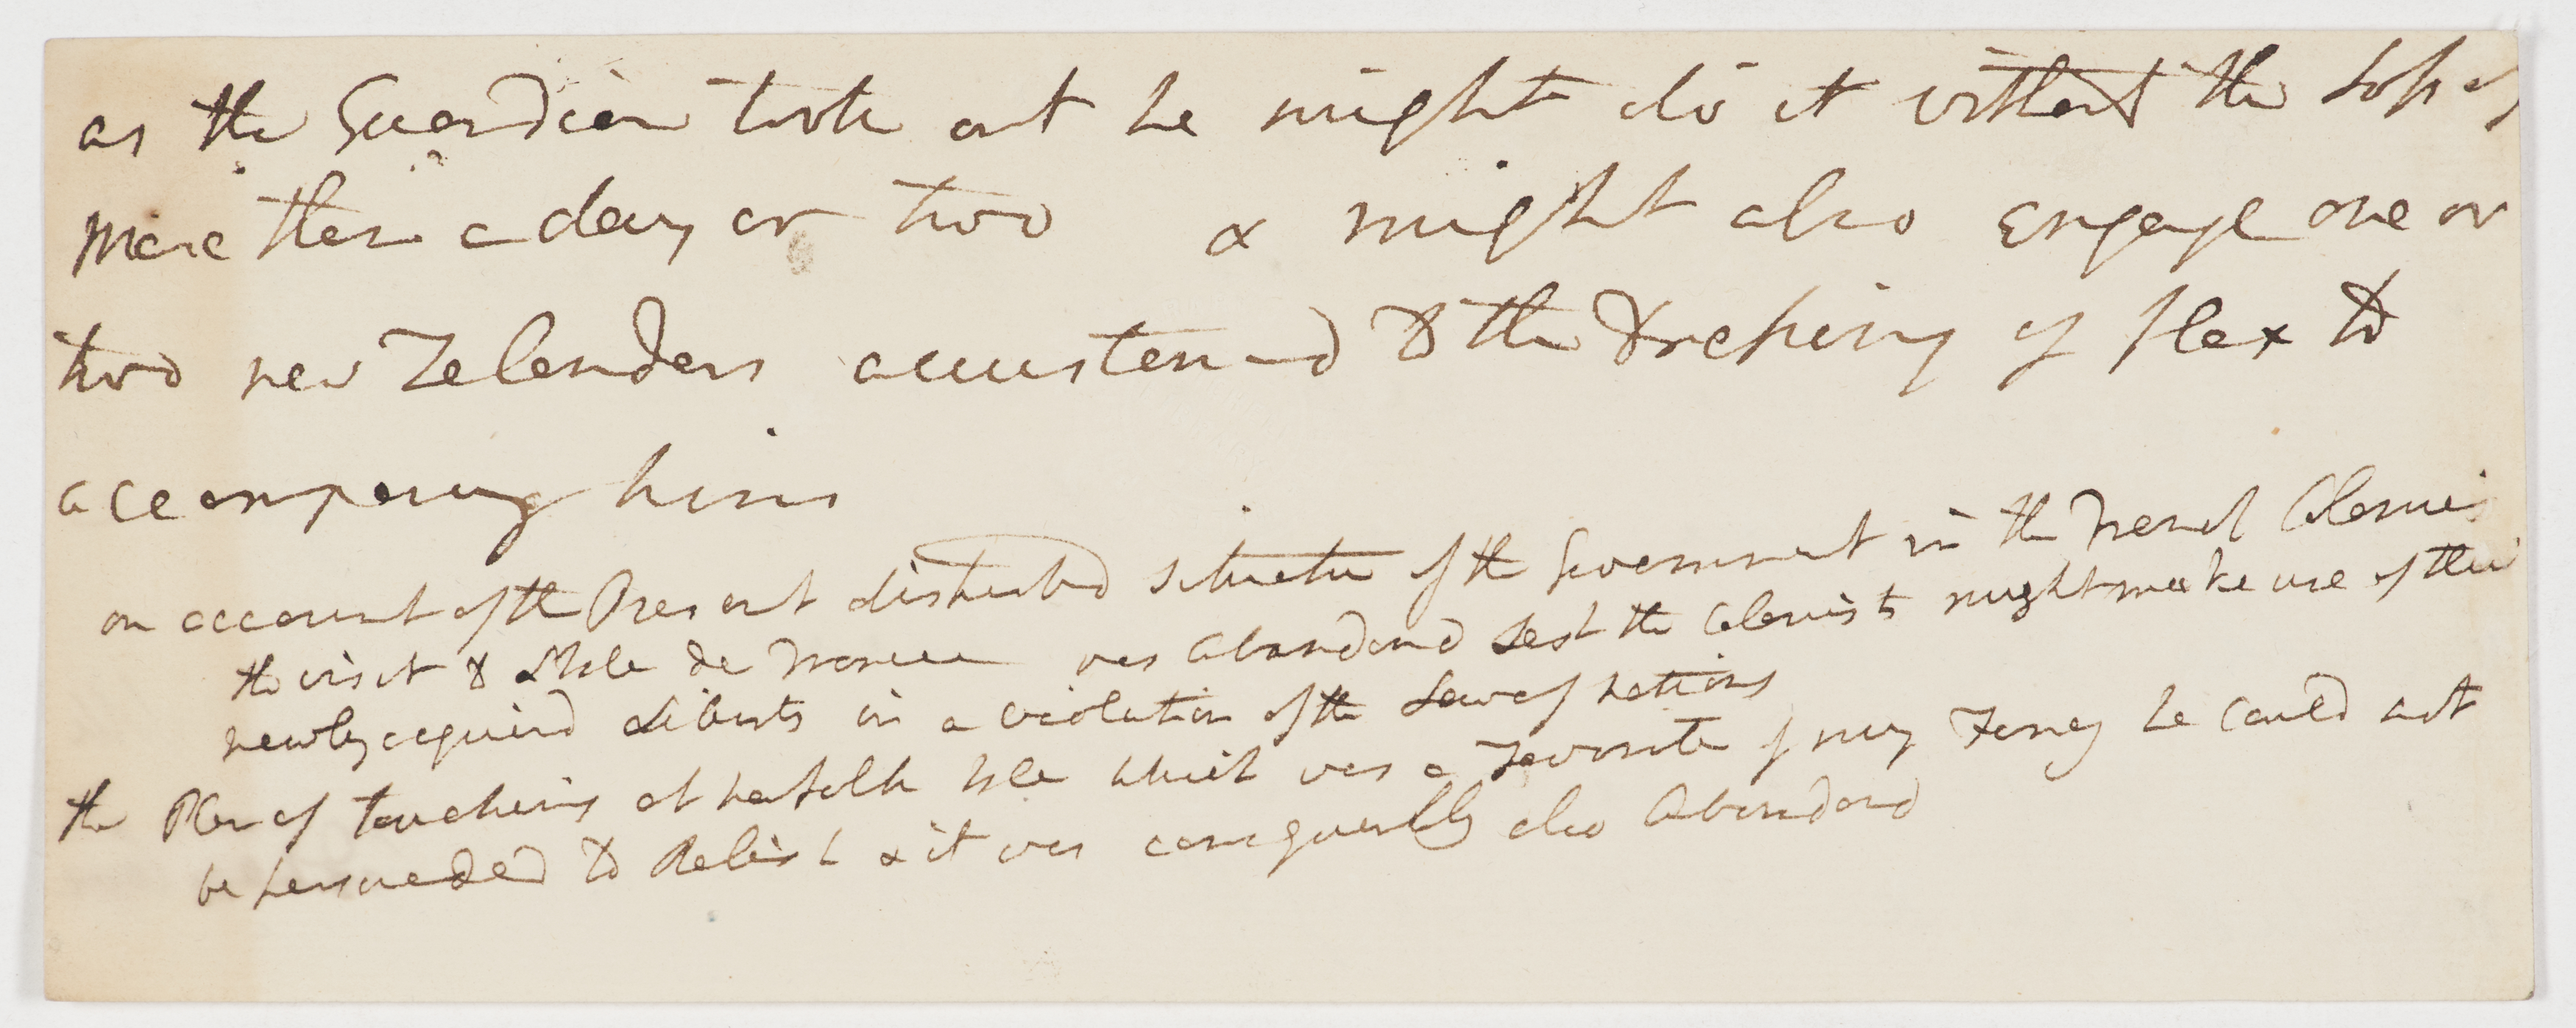 as the Guardian took out he might do it without the Loss of
more than a day or two & might also Engage one or
two new Zelanders accustomd to the Dressing of flax to
accompany him
on account of the Present disturbd situation of the Government in the French Colonies
the visit to L'Isle de France was Abandond Lest the Colonists might make use of their
newly acquird Liberty in a violation of the Law of nations
the Plan of touching at Norfolk Isle which was a Favorite of my Fancy he Could not
be persuaded to Relish & it was consequently also Abandond